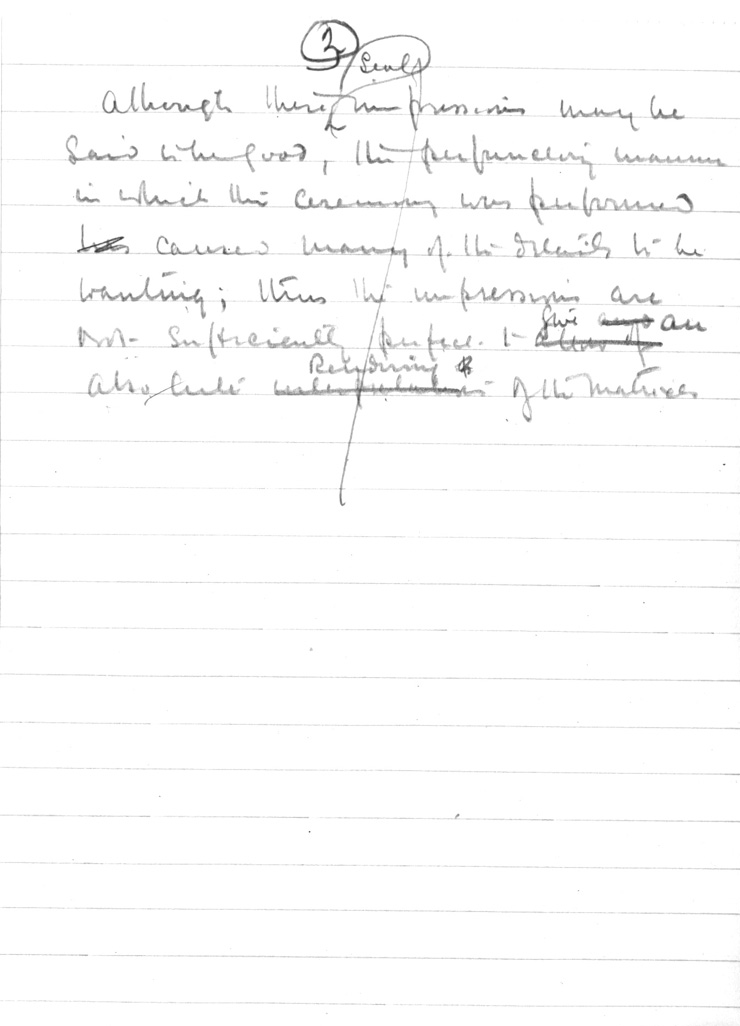 3
Seal
Although these impressions may be
said to be good, the perfunctory manner
in which the ceremony was performed
has caused many of the details to be
wanting; thus the impressions are
not sufficiently perfect to give an
absolute rendering of the matrices